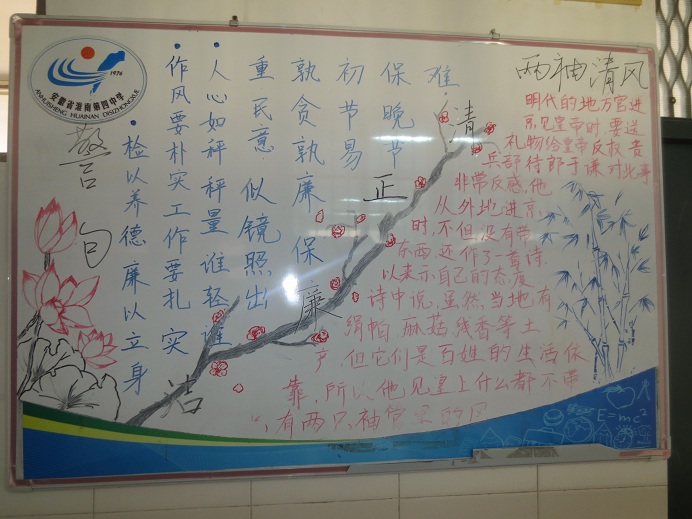 1976
安徽省淮南第四中学
ANHUISHENG HUAINAN DISIZHONGXUE
警句
•检以养德 廉以立身
•作风要朴实工作要扎实
•人心如秤秤量谁轻谁
重民意 似镜照出
孰贪孰廉 保
初节易
保晚节
难
清正廉洁
两袖清风
明代的地方官进
京见皇帝时要送
礼物给皇帝反权贵
兵部待郎于谦对此事
非常反感,他
从外地进京
时,不但没有带
东西,还作了一首诗
以表示自己的态度
诗中说,虽然当地有
绢帕 麻菇 线香等土
产,但它们是百姓的生活依
靠,所以他见皇上什么都不带
,有两只袖管 的风
E=mc²